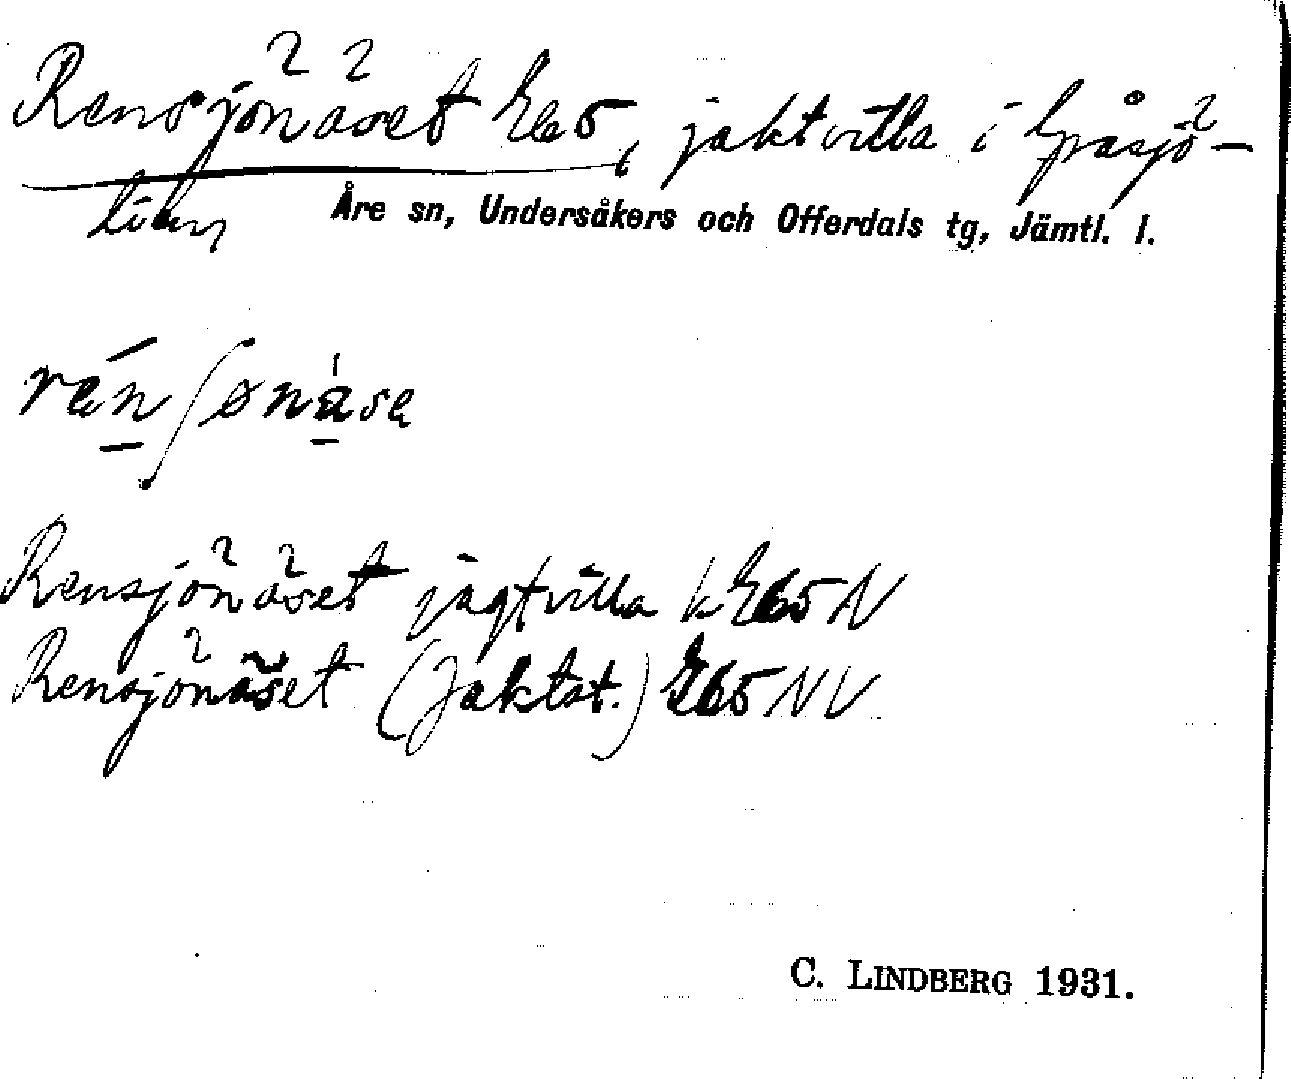 Rensjönäset Eb5, jaktvilla i Gråsjö-
liden
Åre sn, Undersåkers och Offerdals tg, Jämtl. l.
Rensjönäset jagtvilla k Eb5 N
Rensjönäset (Jaktst.) Eb5 NV
C. LINDBERG 1931.